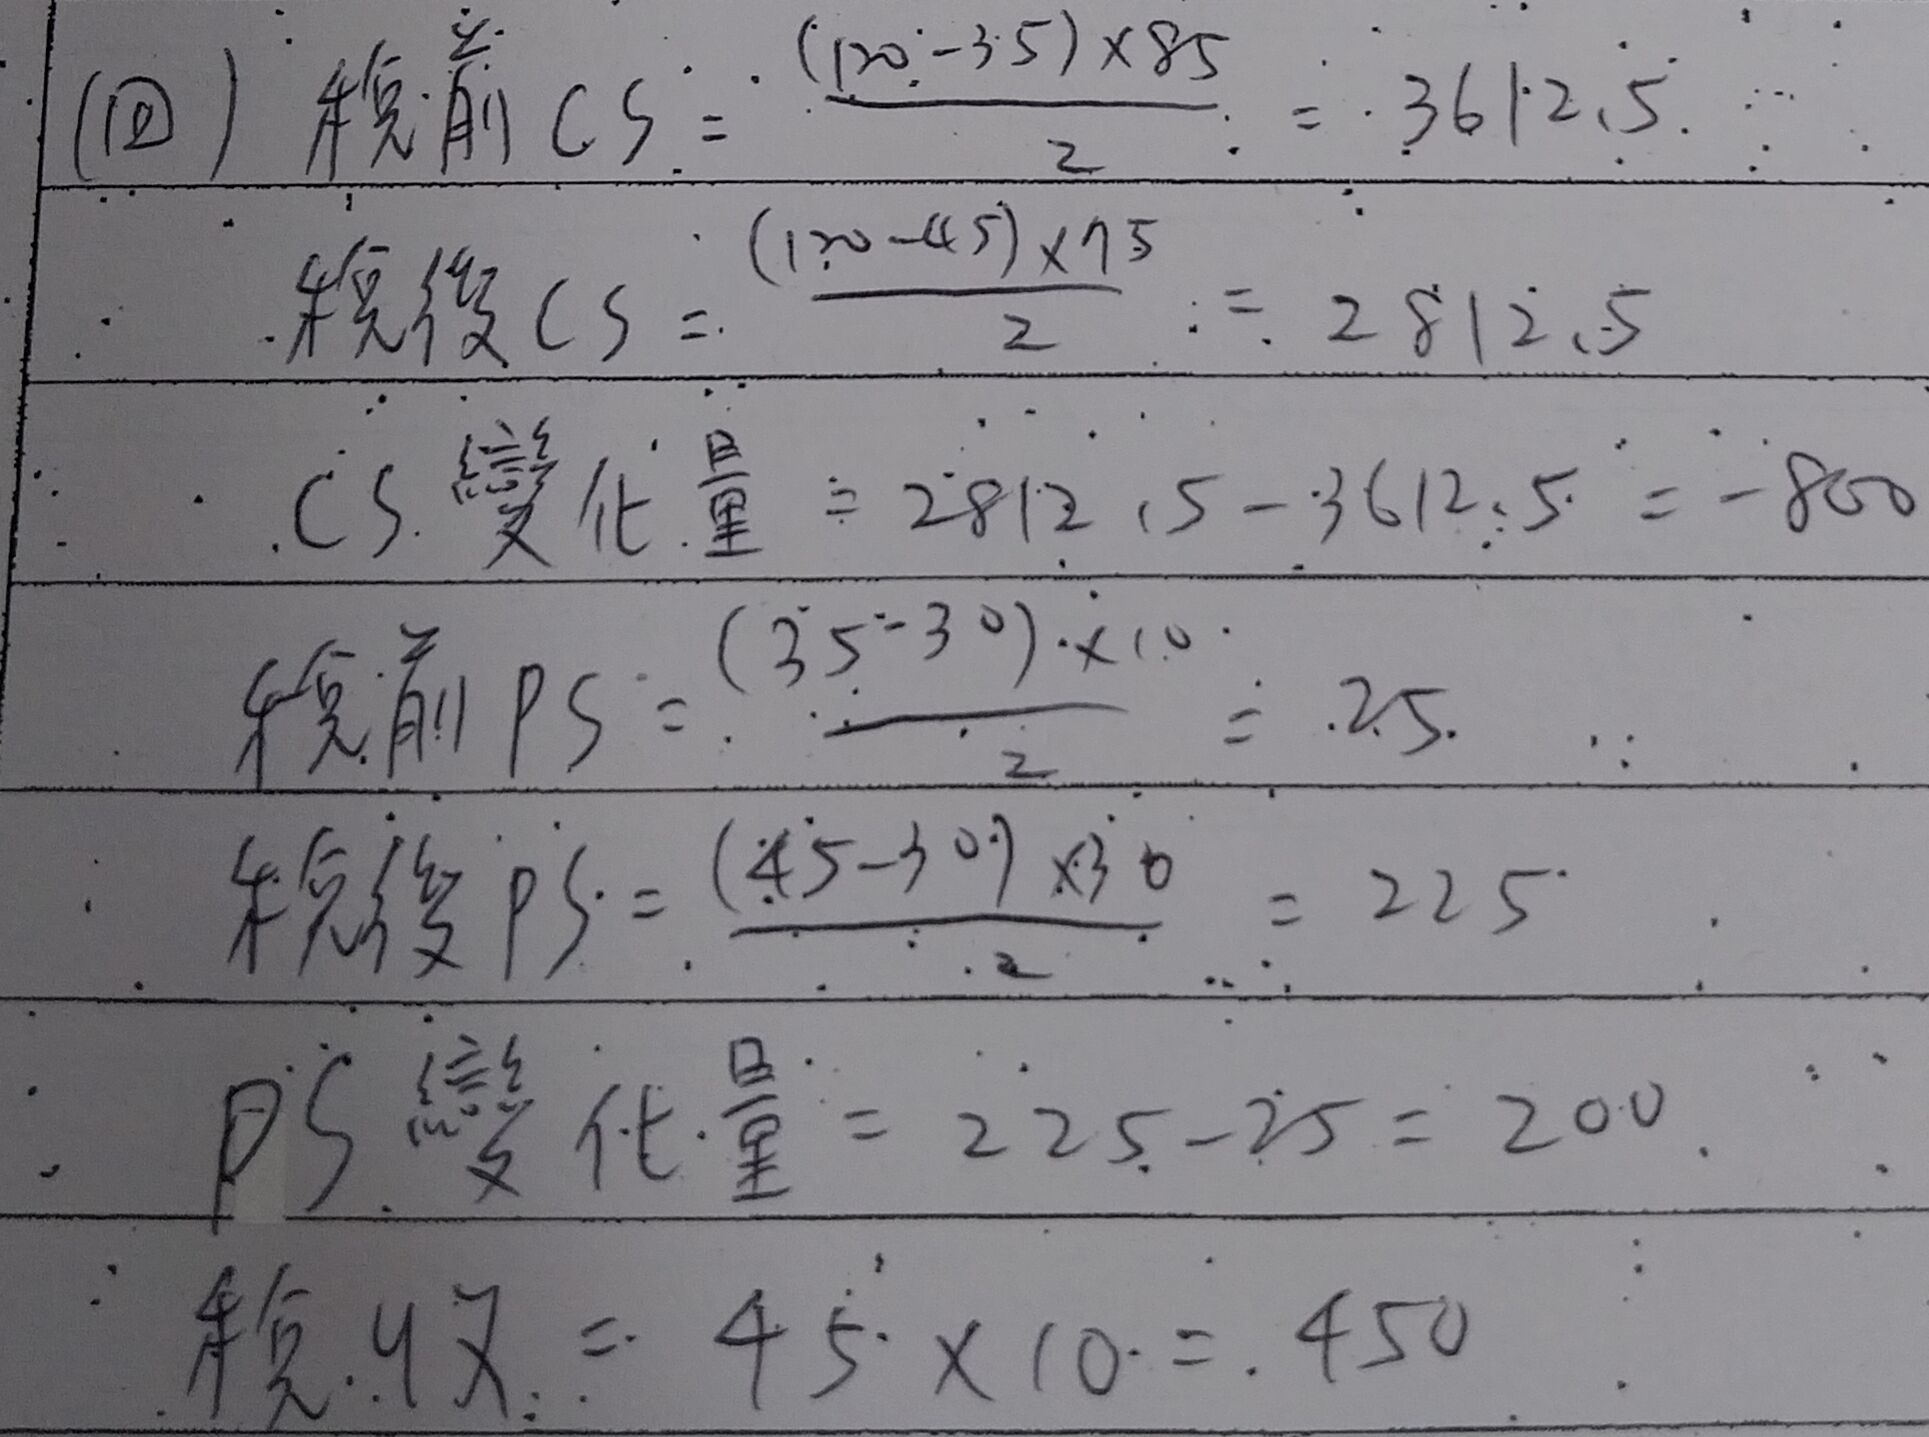 (四) 稅前CS = (120-35)×85 / 2 = 3612.5
稅後CS = (120-45)×75 / 2 = 2812.5
CS變化量 = 2812.5-3612.5 = -800
稅前PS = (35-30)×10 / 2 = 25
稅後PS = (45-30)×30 / 2 = 225
PS變化量 = 225-25 = 200
稅收 = 45×10 = 450